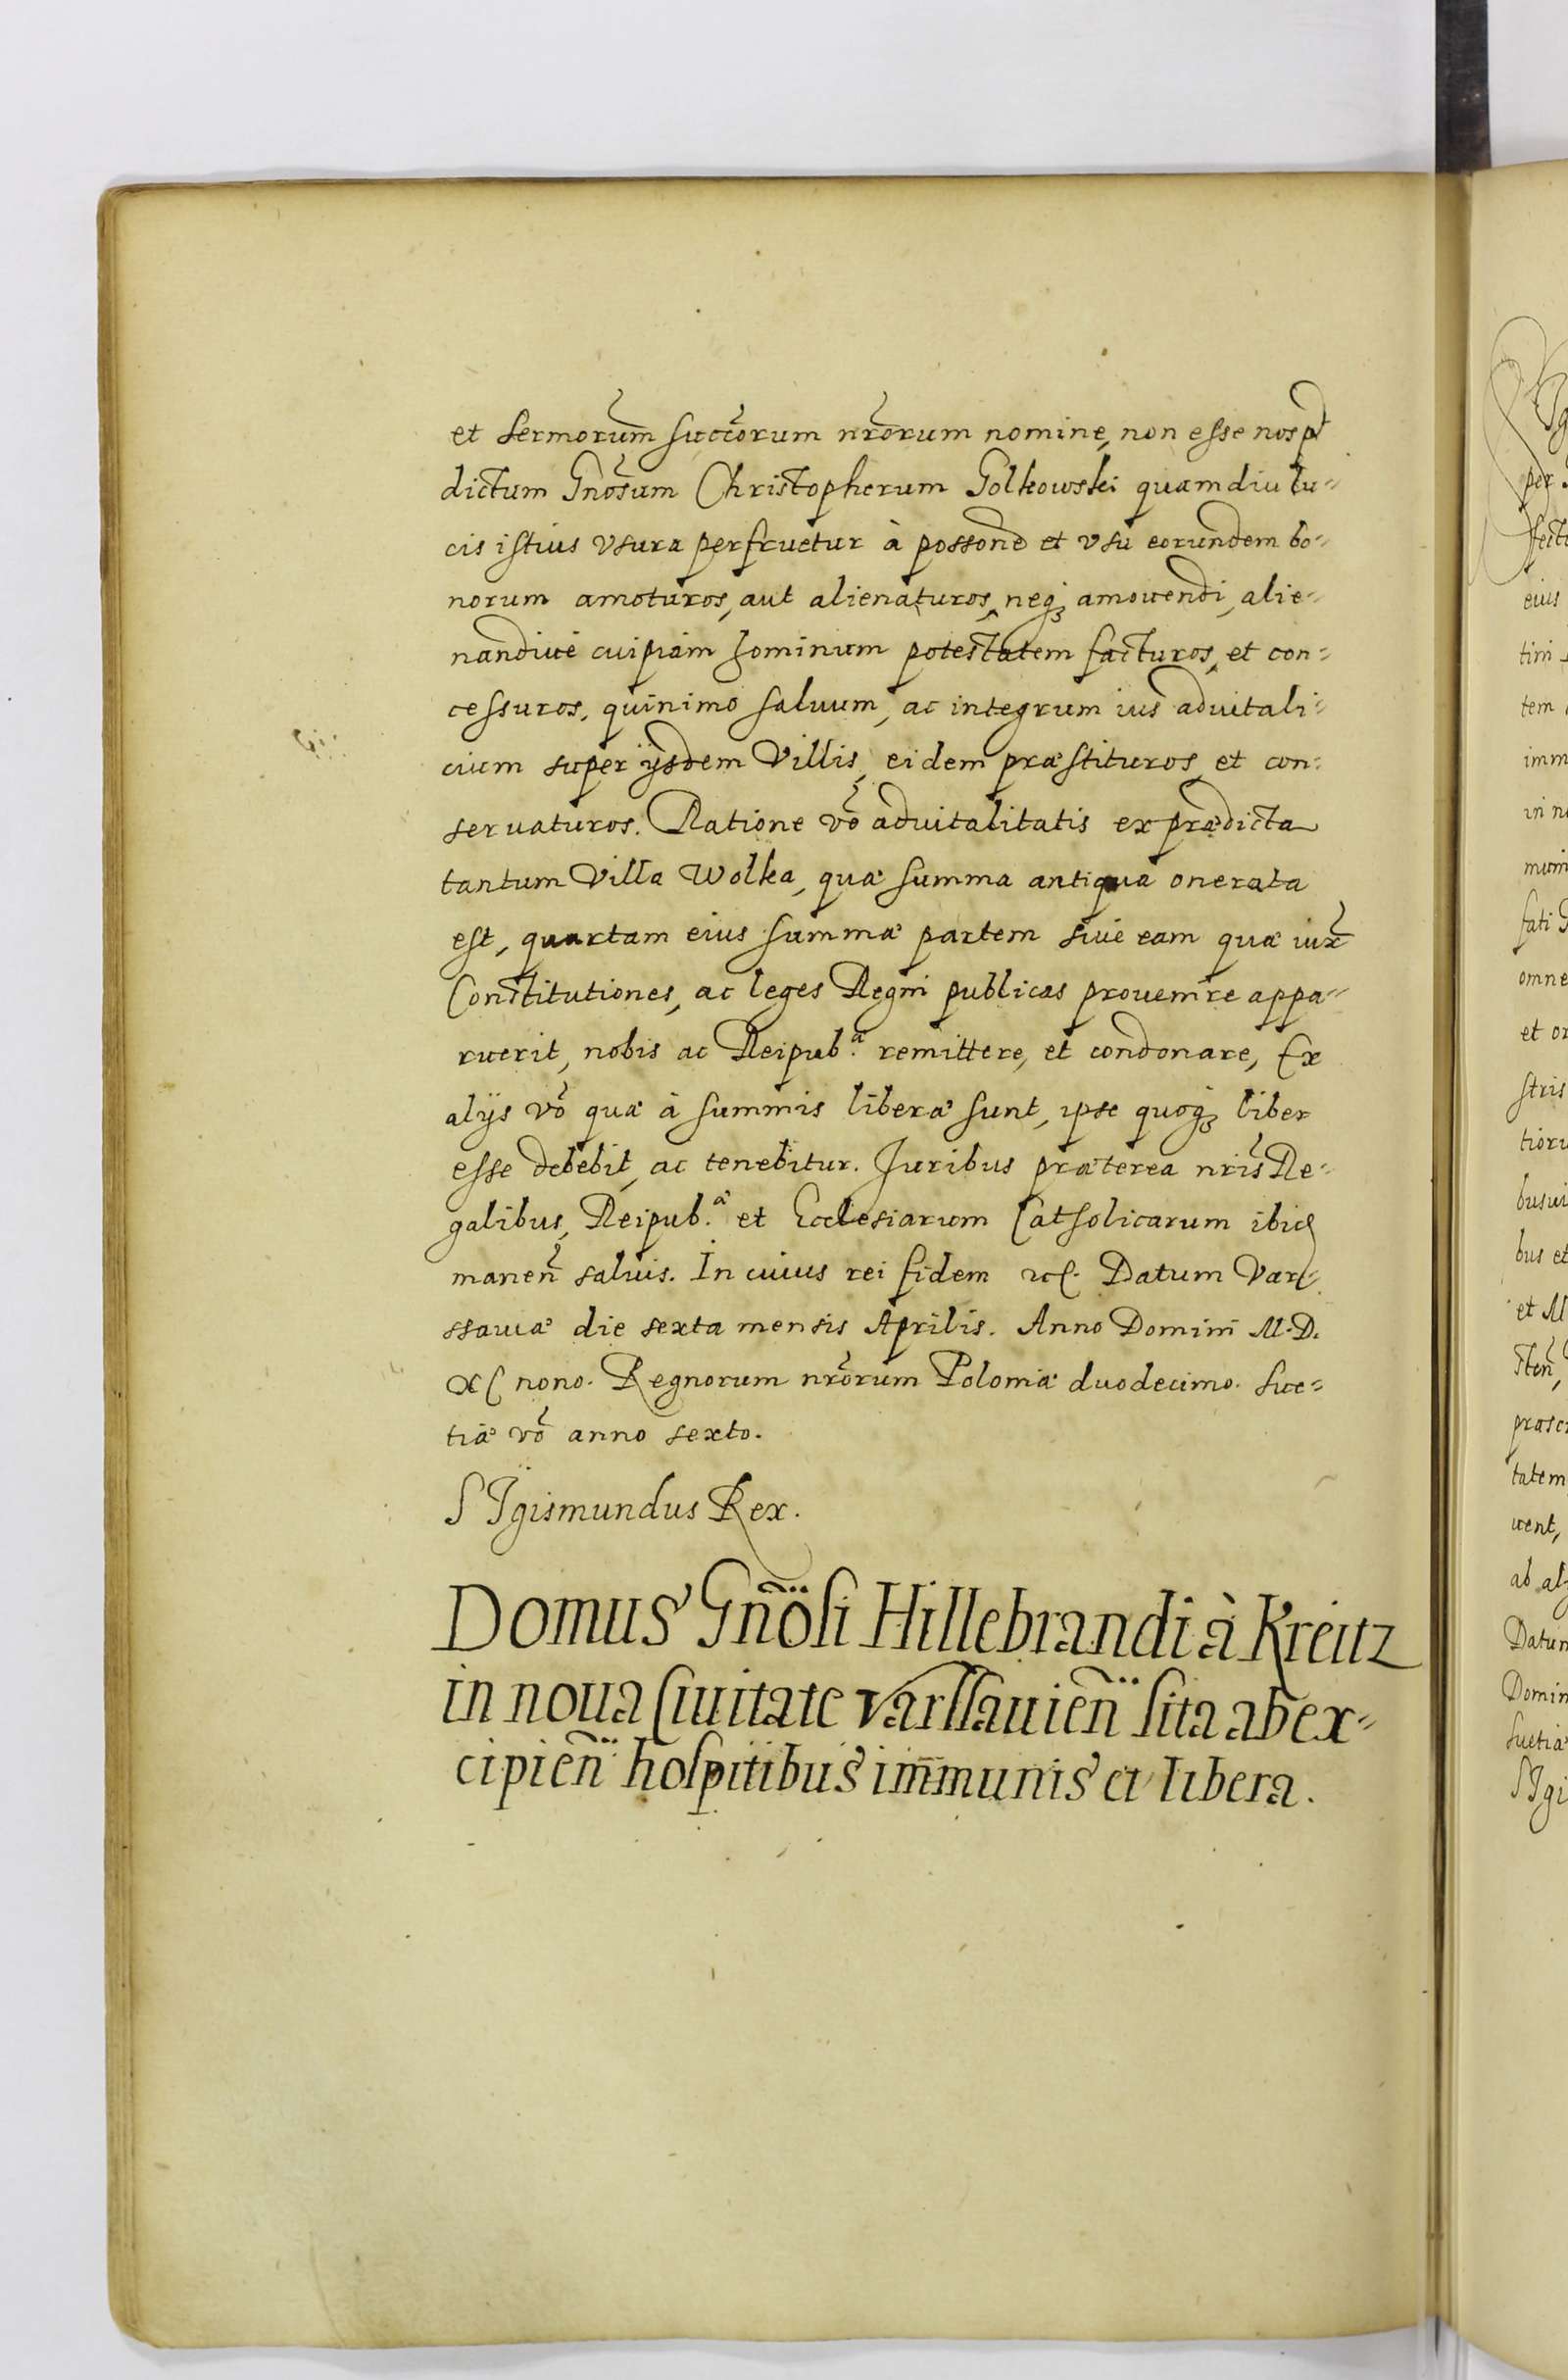 et sermorum̃ succ̃orum nr̃orum nomine, non esse nos pd
dictum Gnos̃um Christopherum Golkowski quamdiu lu=
cis istius vsura perfruetur à possone et vsu eorundem bo=
norum amoturos, aut alienaturos, neq₃ amouendi, alie=
nandiue cuipiam hominum potestatem facturos, et con=
cessuros, quinimo saluum, ac integrum ius aduitali=
cium super ijsdem Villis, eidem præstituros, et con=
seruaturos. Ratione võ aduitalitatis ex prædicta
tantum Villa Wolka, quæ summa antiqua onerata
est, quartam eius summæ partem siue eam quæ iux̃
Constitutiones, ac leges Regni publicas prouenire appa=
ruerit, nobis ac Reipub.ᵃ remittere, et condonare, Ex
alijs võ quæ à summis liberæ sunt, ipse quoq₃ liber
esse debebit, ac tenebitur. Juribus præterea nr̃is Re=
galibus, Reipub.ᵃ et Ecclesiarum Catholicarum ibid
maneñ saluis. In cuius rei fidem etc. Datum Var=
ssauiæ die sexta mensis Aprilis. Anno Domini M.D.
XC nono. Regnorum nr̃orum Poloniæ duodecimo. Sue=
tiæ võ anno sexto.
SIgismundus Rex.
Domus Gñosi Hillebrandi à Kreitz
in noua Ciuitate Varssauieñ sita ab ex=
cipieñ hospitibus im̄munis et libera.
per
eius
tim
tem
imm
in n
muni
fati
omne
et or
stris
tioru
busui
bus et
et M
præsc
tatem
uent,
ab al
Datum
Domin
Suetiæ
SIgi